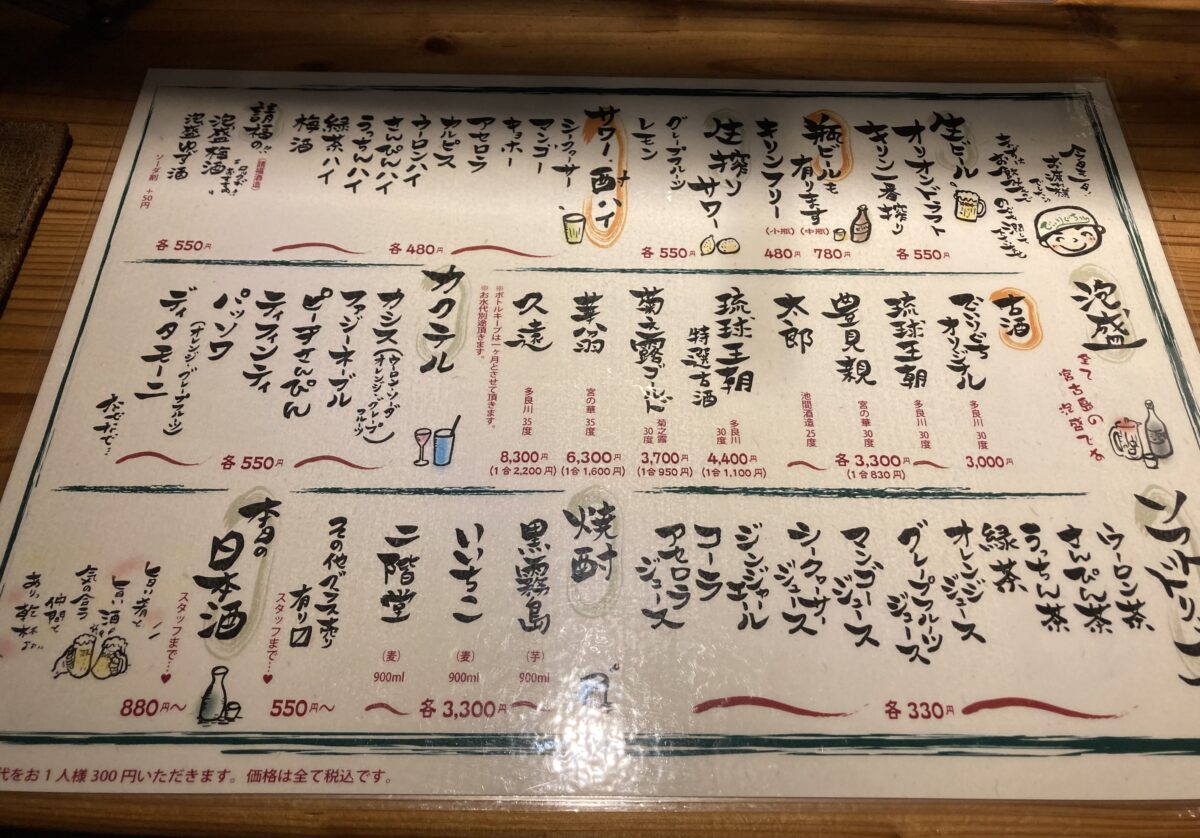 生ビール
オリオンドラフト
キリン一番搾り
各550円
瓶ビールも
有ります
(中瓶)
780円
(小瓶)
480円
キリンフリー
生搾り
サワー
グレープフルーツ
レモン
各550円
サワー・酎ハイ
シークヮーサー
マンゴー
キョホー
アセロラ
カルピス
ウーロンハイ
さんぴんハイ
うっちんハイ
緑茶ハイ
梅酒
各480円
請福の
(請福酒造)
泡盛梅酒
泡盛ゆず酒
ソーダ割 +50円
各550円
泡盛
全て
宮古島の
泡盛です
古酒
オリジナル
多良川 30度
3,000円
琉球王朝
多良川 30度
豊見親
宮の華 30度
太郎
池間酒造 25度
各3,300円
(1合830円)
琉球王朝
特選古酒
多良川
30度
4,400円
(1合1,100円)
菊之露ゴールド
菊之露
30度
3,700円
(1合950円)
華翁
宮の華 35度
6,300円
(1合1,600円)
久遠
多良川 35度
8,300円
(1合2,200円)
※ボトルキープは一ヶ月とさせて頂きます。
※お水代別途頂きます。
カクテル
カシス(ウーロン・ソーダ
オレンジ・グレープ
フルーツ)
ファジーネーブル
ピーチさんぴん
ティフィンティ
パッソワ
(オレンジ・グレープフルーツ)
ディタモーニ
各550円
ソフトドリンク
ウーロン茶
さんぴん茶
うっちん茶
緑茶
オレンジジュース
グレープフルーツ
ジュース
マンゴージュース
シークヮーサー
ジュース
ジンジャー
エール
コーラ
アセロラ
ジュース
各330円
焼酎
黒霧島
(芋)
900ml
いいちこ
(麦)
900ml
二階堂
(麦)
900ml
各3,300円
その他グラス売り
有り口
スタッフまで…♥
550円〜
本日の
日本酒
スタッフまで…♥
880円〜
旨い肴と
旨い酒
気の合う
仲間と
代をお1人様300円いただきます。価格は全て税込です。